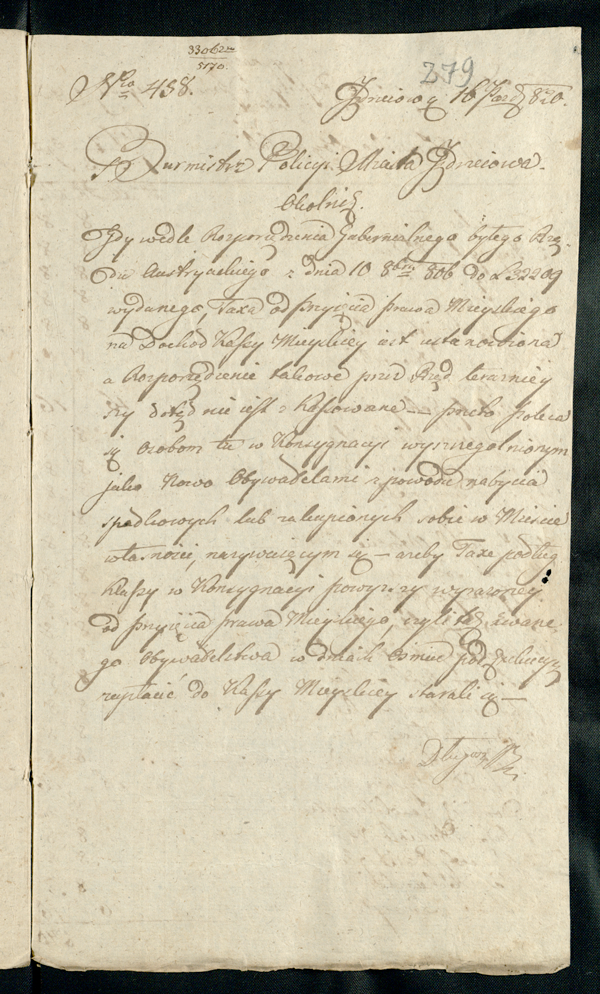 3306
5170.
279
Nro 458.
Żdzieiow 16 Paźd 820.
Burmistrz Policyi Miasta Żdzieiowa.
Okolnik.
Gdy wedle Rozporządzenia Gubernialnego byłego Rzą-
du Austryackiego z dnia 10 8bris 806 do L 32209
wydanego, Taxa od przyięcia prawa Mieyskiego
na Dochod Kassy Mieyskiey iest ustanowiona
a Rozporządzenie takowe przez Rząd teraznieÿ-
szy dotąd nie iest z Kasowane — przeto poleca
się Osobom tu w Konsygnacyi wyszczegolnionym
jako Nowo Obywatelami z powodu nabycia
spadkowych lub zakupionych sobie w Mieście
własności, nazywaiącym się — ażeby Taxe podług
Klassy w Konsygnacyi powyższy wyrażoney
od przyięcia prawa Mieyskiego, czyli tak zwane-
go Obywatelstwa w dniach Osmiu
zapłacić do Kassy Mieyskiey starali się —